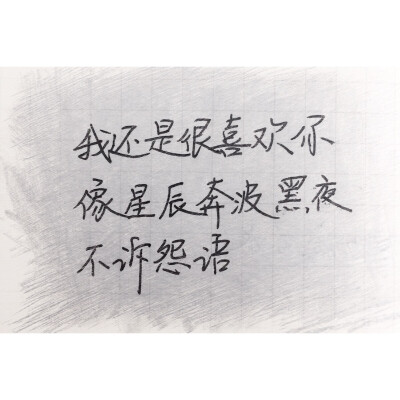 我还是很喜欢你
像星辰奔波黑夜
不诉怨语